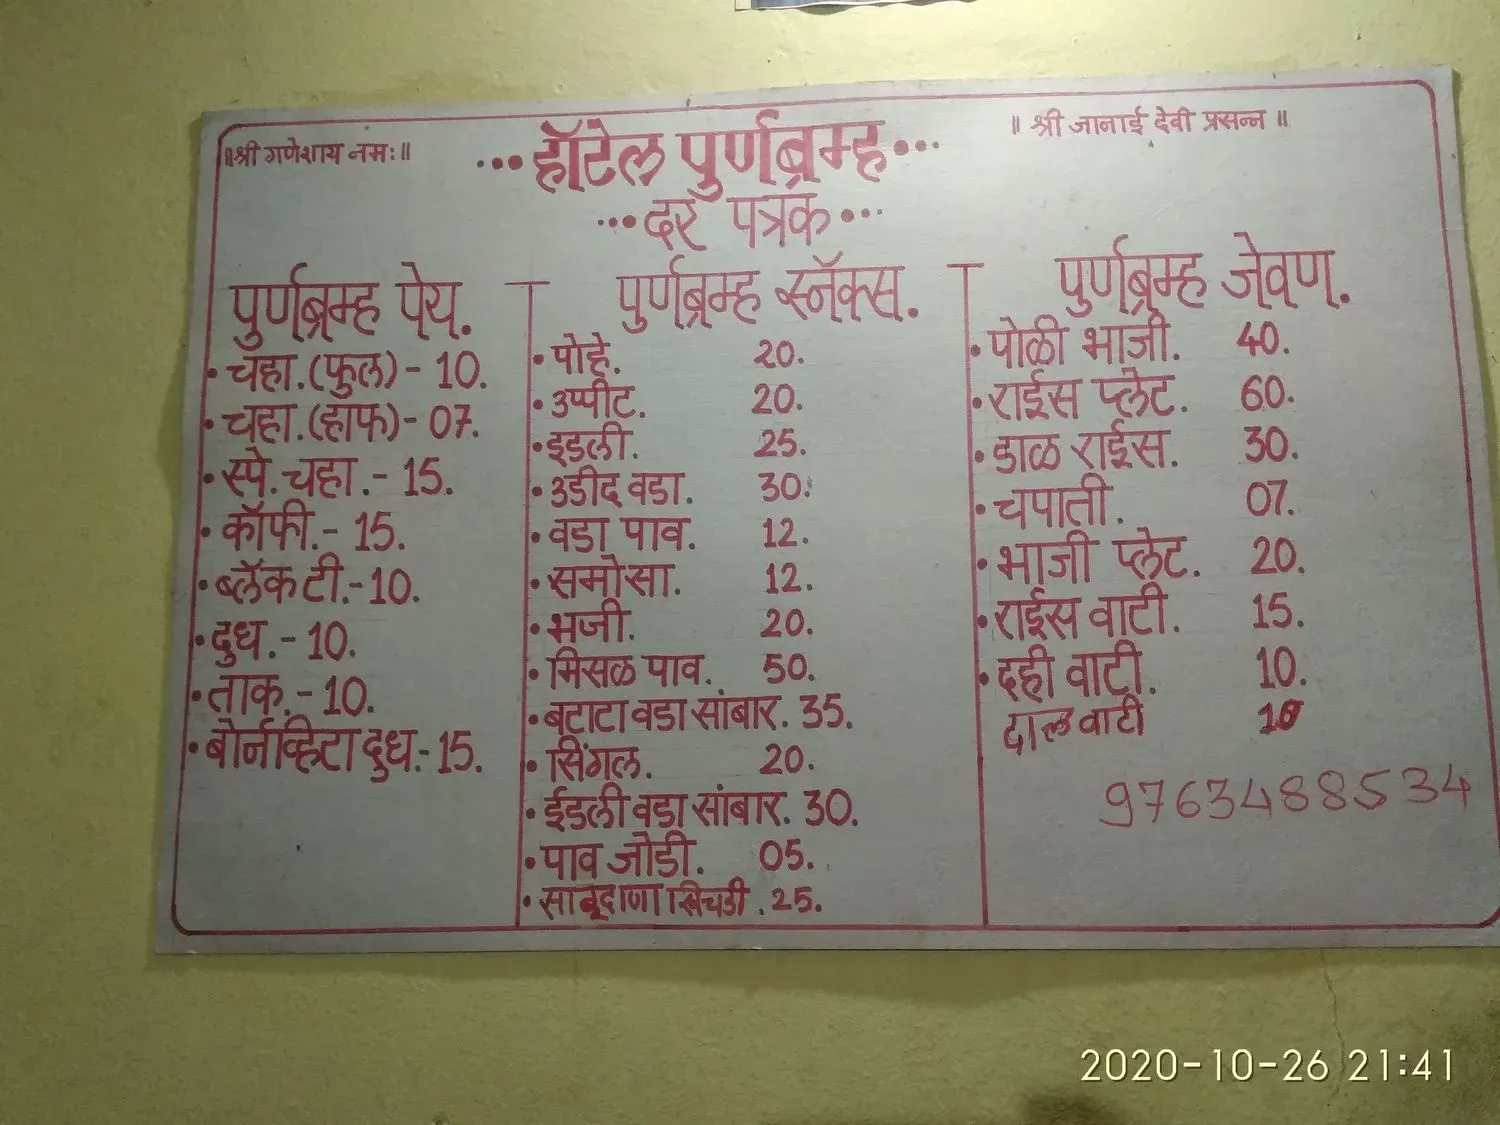 ॥श्री गणेशाय नमः॥
॥ श्री जानाई देवी प्रसन्न ॥
...हॉटेल पुर्णब्रम्ह...
...दर पत्रक...
पुर्णब्रम्ह पेय.
• चहा.(फुल) - 10.
• चहा.(हाफ)- 07.
• स्पे. चहा.- 15.
• कॉफी.- 15.
• ब्लॅक टी.-10.
• दुध.- 10.
• ताक.- 10.
• बोर्नव्हिटा दुध.- 15.
पुर्णब्रम्ह स्नॅक्स.
• पोहे. 20.
• उप्पीट. 20.
• इडली. 25.
• उडीद वडा. 30.
• वडा पाव. 12.
• समोसा. 12.
• भजी. 20.
• मिसळ पाव. 50.
• बटाटा वडा सांबार. 35.
• सिंगल. 20.
• ईडली वडा सांबार. 30.
• पाव जोडी. 05.
• साबूदाणा खिचडी .25.
पुर्णब्रम्ह जेवण.
• पोळी भाजी. 40.
• राईस प्लेट. 60.
• डाळ राईस. 30.
• चपाती. 07.
• भाजी प्लेट. 20.
• राईस वाटी. 15.
• दही वाटी. 10.
दाल वाटी 10
9763488534
2020-10-26 21:41